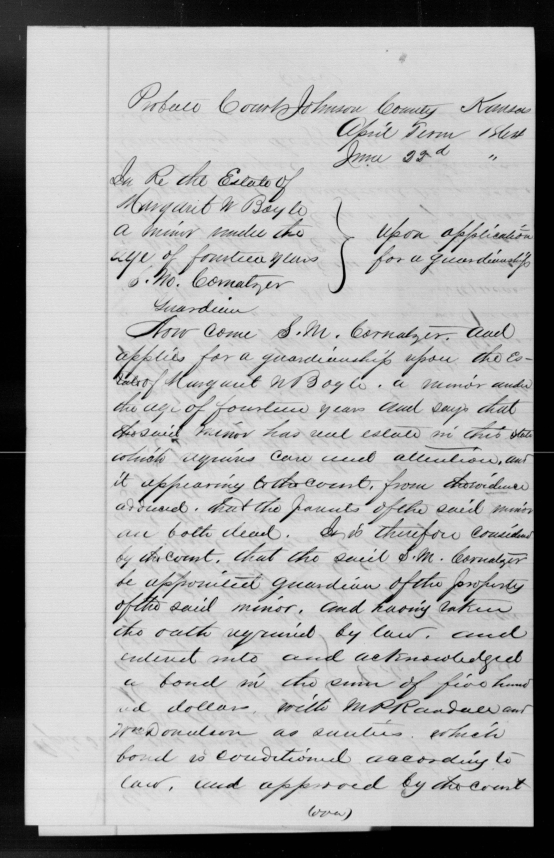 Probate Court Johnson County Kansas
April Term 1864
June 22d "
In Re the Estate of
Margaret W Boyle
a minor under the
age of fourteen years
S. M. Cornatzer
Guardian
upon application
for a guardianship
Now come S. M. Cornatzer. and
applies for a guardianship upon the Es-
tate of Margaret W Boyle. a minor under
the age of fourteen years and says that
the said minor has real estate in this State
which requires care and attention, and
it appearing to the court, from the evidence
adduced. that the parents of the said minor
are both dead. It is therefore considered
by the court, that the said S. M. Cornatzer
be appointed guardian of the property
of the said minor, and having taken
the oath required by law, and
entered into and acknowledged
a bond in the sum of five hund
red dollars, with M P Randall and
Wm Donelson as sureties which
bond is conditioned according to
law, and approved by the court
(over)